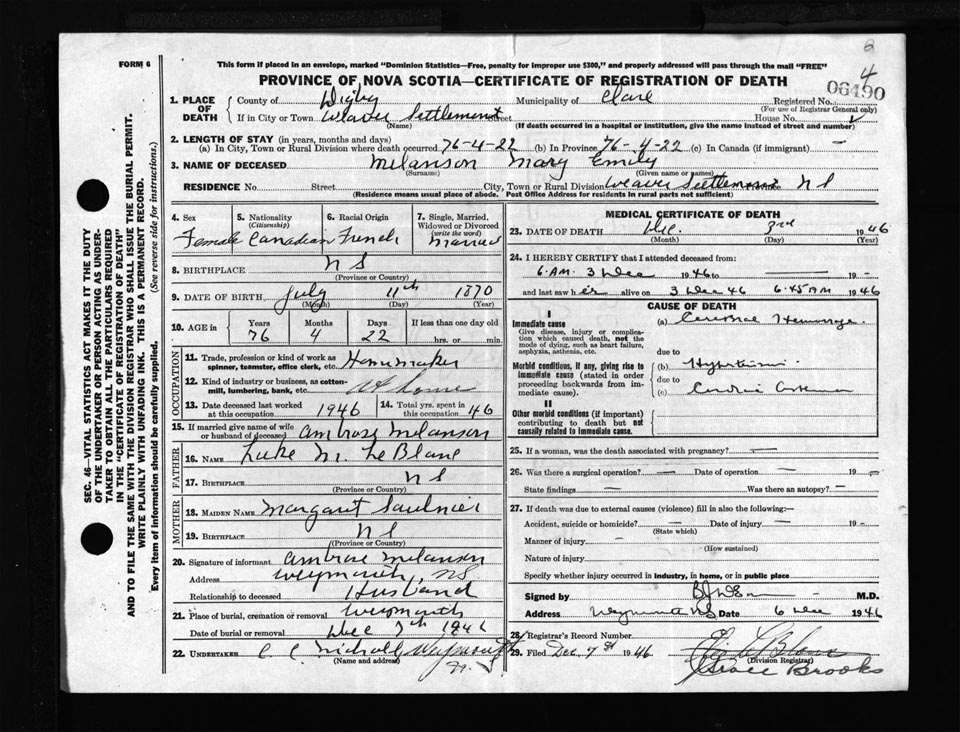 6
4
FORM 6
This form if placed in an envelope, marked "Dominion Statistics—Free, penalty for improper use $300," and properly addressed will pass through the mail "FREE"
PROVINCE OF NOVA SCOTIA—CERTIFICATE OF REGISTRATION OF DEATH
06490
1. PLACE OF DEATH
County of Digby Municipality of Clare Registered No.
(For use of Registrar General only)
If in City or Town Weaver Settlement Street House No.
(Name) (If death occurred in a hospital or institution, give the name instead of street and number)
2. LENGTH OF STAY (in years, months and days)
(a) In City, Town or Rural Division where death occurred 76-4-22 (b) In Province 76-4-22 (c) In Canada (if immigrant) —
3. NAME OF DECEASED Melanson Mary Emily
(Surname) (Given name or names)
RESIDENCE No. Street City, Town or Rural Division Weaver Settlement N S
(Residence means usual place of abode. Post Office Address for residents in rural parts not sufficient)
4. Sex Female
5. Nationality (Citizenship) Canadian
6. Racial Origin French
7. Single, Married, Widowed or Divorced (write the word) Married
8. BIRTHPLACE N S
(Province or Country)
9. DATE OF BIRTH July 11th 1870
(Month) (Day) (Year)
10. AGE in Years 76 Months 4 Days 22 If less than one day old hrs. or min.
OCCUPATION
11. Trade, profession or kind of work as spinner, teamster, office clerk, etc. Homemaker
12. Kind of industry or business, as cotton-mill, lumbering, bank, etc. At Home
13. Date deceased last worked at this occupation 1946
14. Total yrs. spent in this occupation 46
15. If married give name of wife or husband of deceased Ambrose Melanson
FATHER
16. NAME Luke M. LeBlanc
17. BIRTHPLACE N S
(Province or Country)
MOTHER
18. MAIDEN NAME Margaret Saulnier
19. BIRTHPLACE N S
(Province or Country)
20. Signature of informant Ambrose Melanson
Address Weymouth, NS
Relationship to deceased Husband
21. Place of burial, cremation or removal Weymouth
Date of burial or removal Dec 7th 1946
22. UNDERTAKER C C Nichall Weymouth
(Name and address) N. S
MEDICAL CERTIFICATE OF DEATH
23. DATE OF DEATH Dec. 3rd 1946
(Month) (Day) (Year)
24. I HEREBY CERTIFY that I attended deceased from:
6 AM. 3 Dec 1946 to — 19 –
and last saw her alive on 3 Dec 46 6.45 AM 1946
CAUSE OF DEATH
I
Immediate cause
Give disease, injury or complication which caused death, not the mode of dying, such as heart failure, asphyxia, asthenia, etc.
(a) Cerebral Hemorrage
due to
Morbid conditions, if any, giving rise to immediate cause (stated in order proceeding backwards from immediate cause)
(b)
due to
(c)
II
Other morbid conditions (if important) contributing to death but not causally related to immediate cause.
25. If a woman, was the death associated with pregnancy? —
26. Was there a surgical operation? — Date of operation — 19 —
State findings — Was there an autopsy? –
27. If death was due to external causes (violence) fill in also the following:—
Accident, suicide or homicide? — Date of injury — 19 –
(State which)
Manner of injury –
(How sustained)
Nature of injury
Specify whether injury occurred in industry, in home, or in public place
Signed by M.D.
Address Weymouth NS Date 6 Dec 1946
28. Registrar's Record Number
29. Filed Dec. 7 1946
(Division Registrar)
Grace Brooks
SEC. 46—VITAL STATISTICS ACT MAKES IT THE DUTY
OF THE UNDERTAKER OR PERSON ACTING AS UNDER-
TAKER TO OBTAIN ALL THE PARTICULARS REQUIRED
IN THE "CERTIFICATE OF REGISTRATION OF DEATH"
AND TO FILE THE SAME WITH THE DIVISION REGISTRAR WHO SHALL ISSUE THE BURIAL PERMIT.
WRITE PLAINLY WITH UNFADING INK. THIS IS A PERMANENT RECORD.
Every item of information should be carefully supplied. (See reverse side for instructions.)